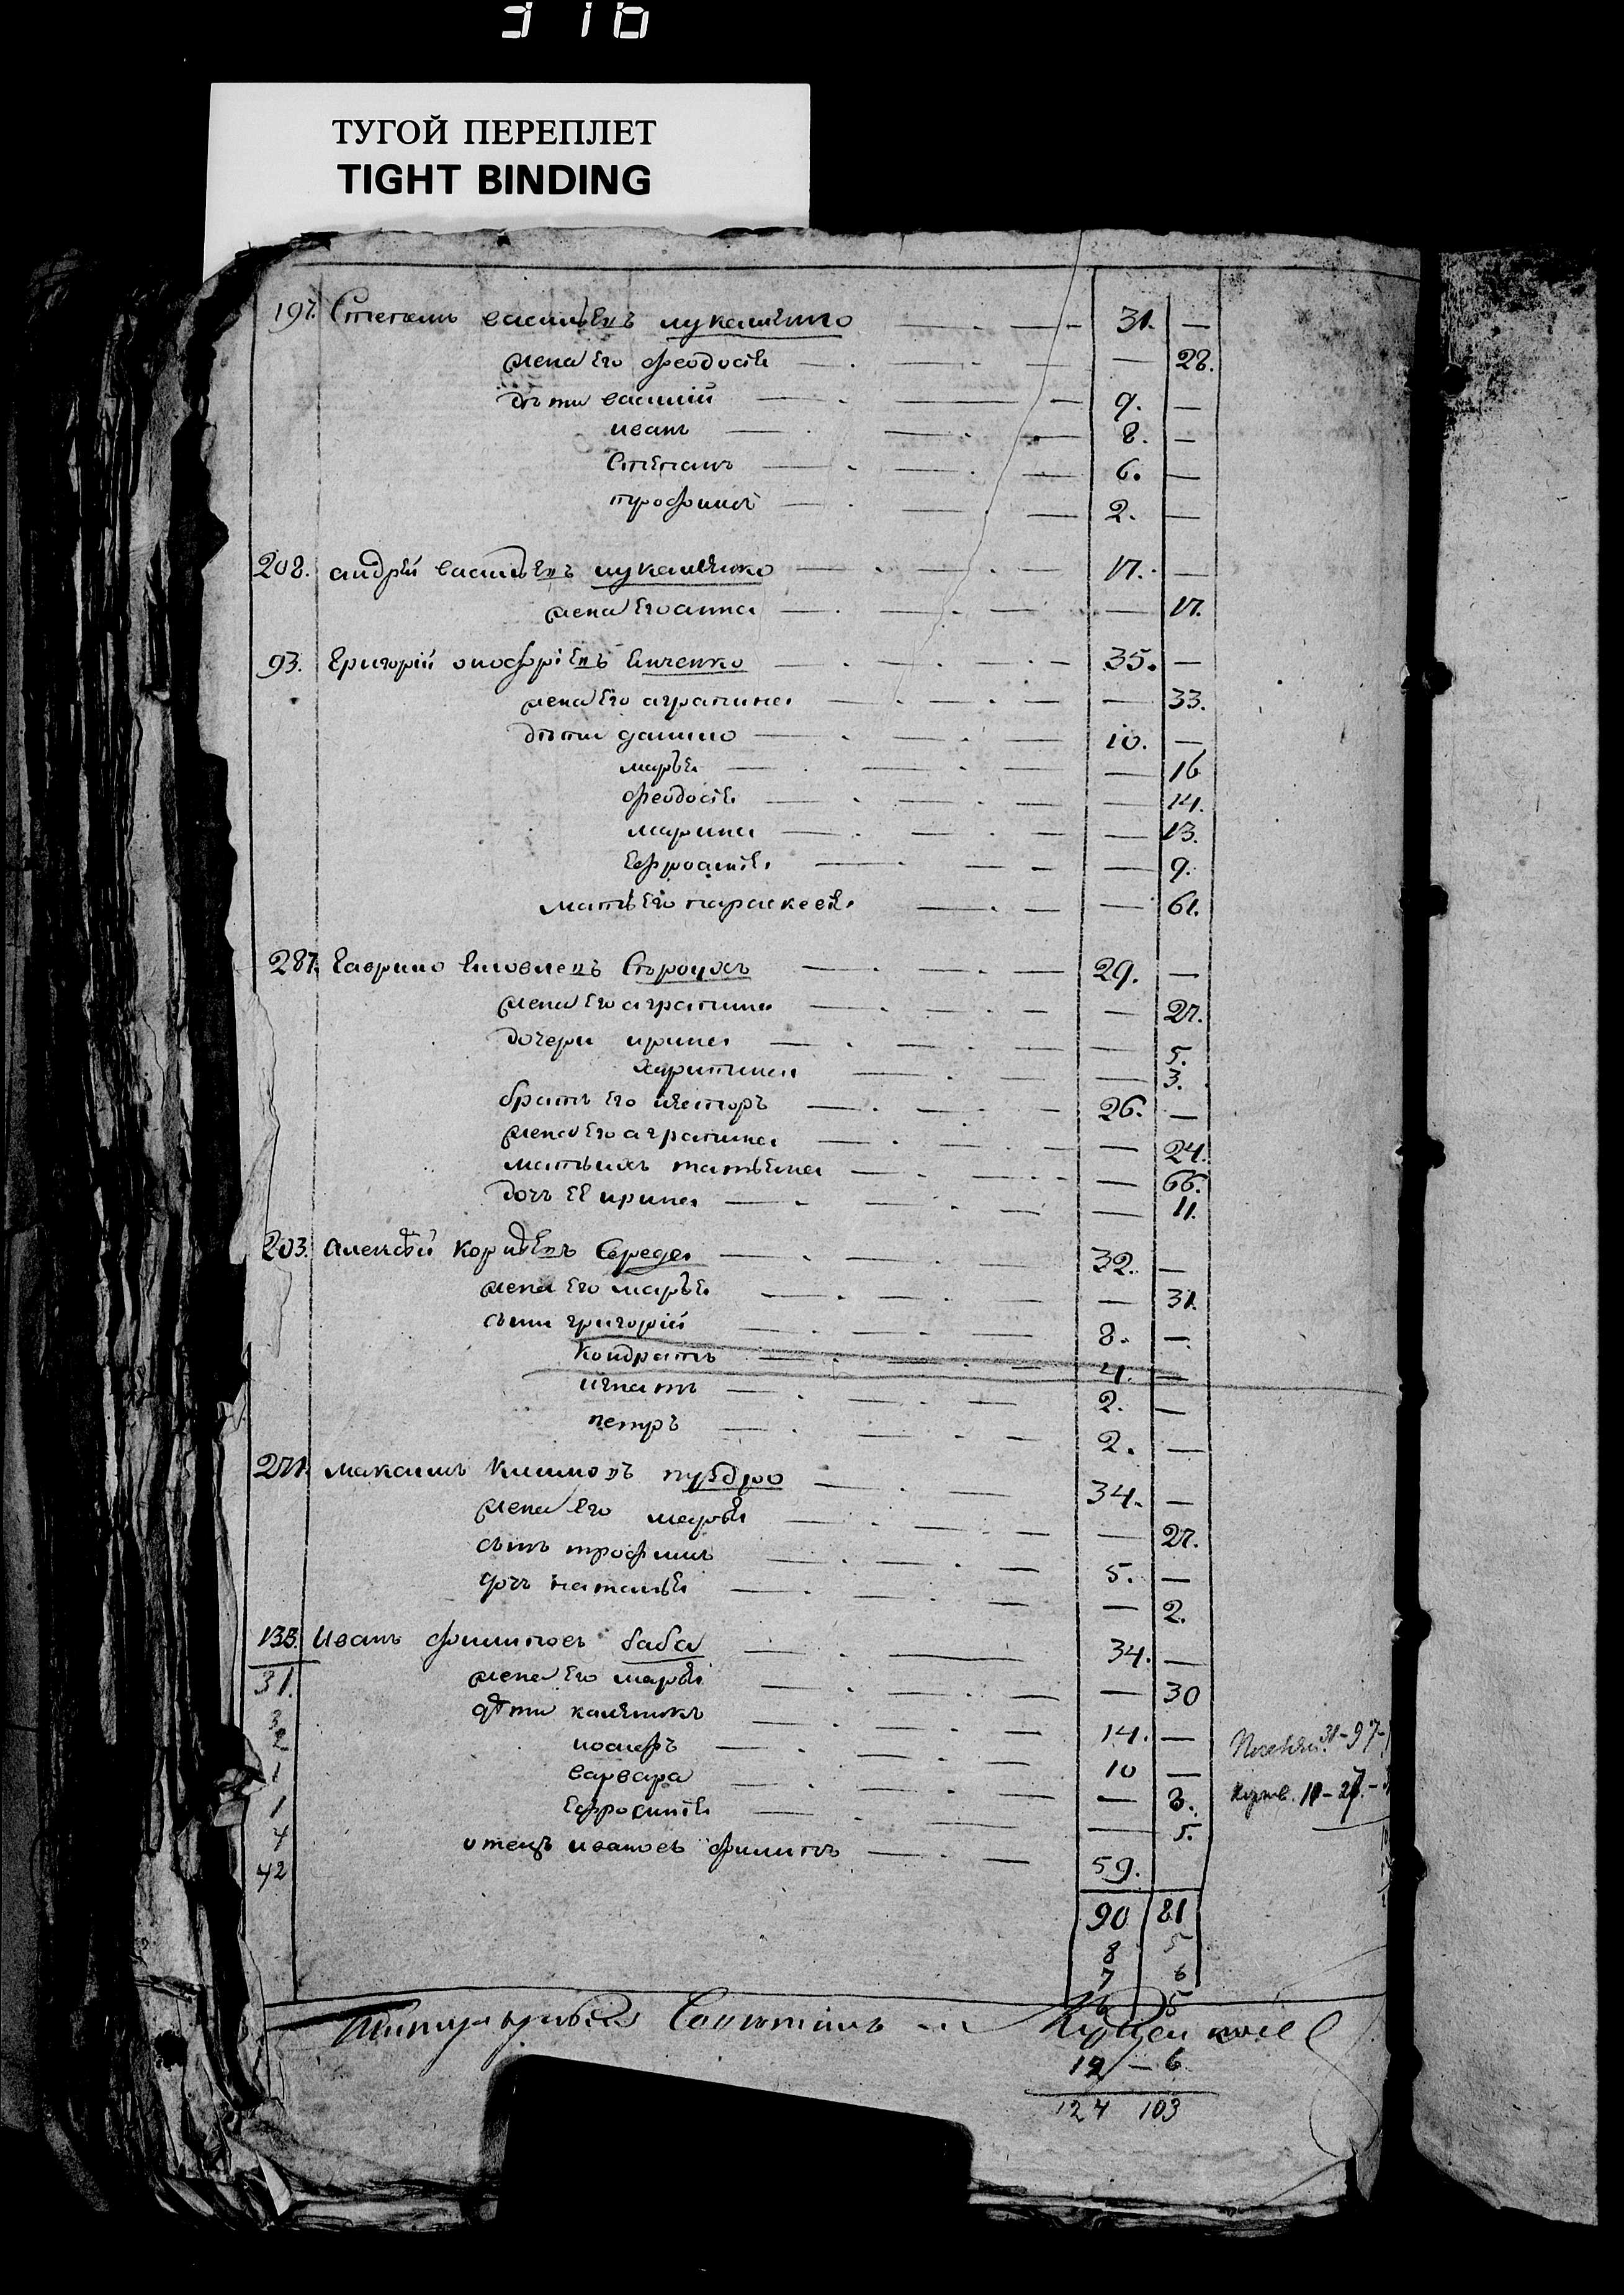 316
ТУГОЙ ПЕРЕПЛЕТ
TIGHT BINDING
197. Степанъ васильевъ лукашенко 31. —
жена Его феодосія — 28.
дѣти василій 9. —
иванъ 8. —
Степанъ 6. —
трофимъ 2. —
208. андрей васильевъ лукашенко 17. —
жена Его анна — 17.
93. Григорій онофріевъ 35. —
жена Его аграпина — 33.
дѣти данило 10. —
марья — 16
феодосія — 14.
марина — 13.
Ефросинія — 9.
мать Его параскевія — 61.
287. Гаврило Яковлевъ 29. —
жена Его аграпина — 27.
дочери ирина — 5.
харитина — 3.
братъ Его несторъ 26. —
жена Его аграпина — 24.
мать ихъ татьяна — 66.
дочь Её ирина — 11.
203. Алексѣй Середа 32. —
жена Его марья — 31.
сыны григорій 8. —
Кондратъ 4. —
игнатъ 2. —
петръ 2. —
271. Максимъ Климовъ 34. —
жена Его марья — 27.
сынъ трофимъ 5. —
дочь наталья — 2.
133. Иванъ филиповъ баба 34. —
31. жена Его марья — 30
дѣти 14. —
іосифъ 10 —
1 варвара — 8.
1 Ефросинія — 5.
4 отецъ ивановъ филипъ 59.
42
90 81
8 5
7 6
5
12 — 6
124 103